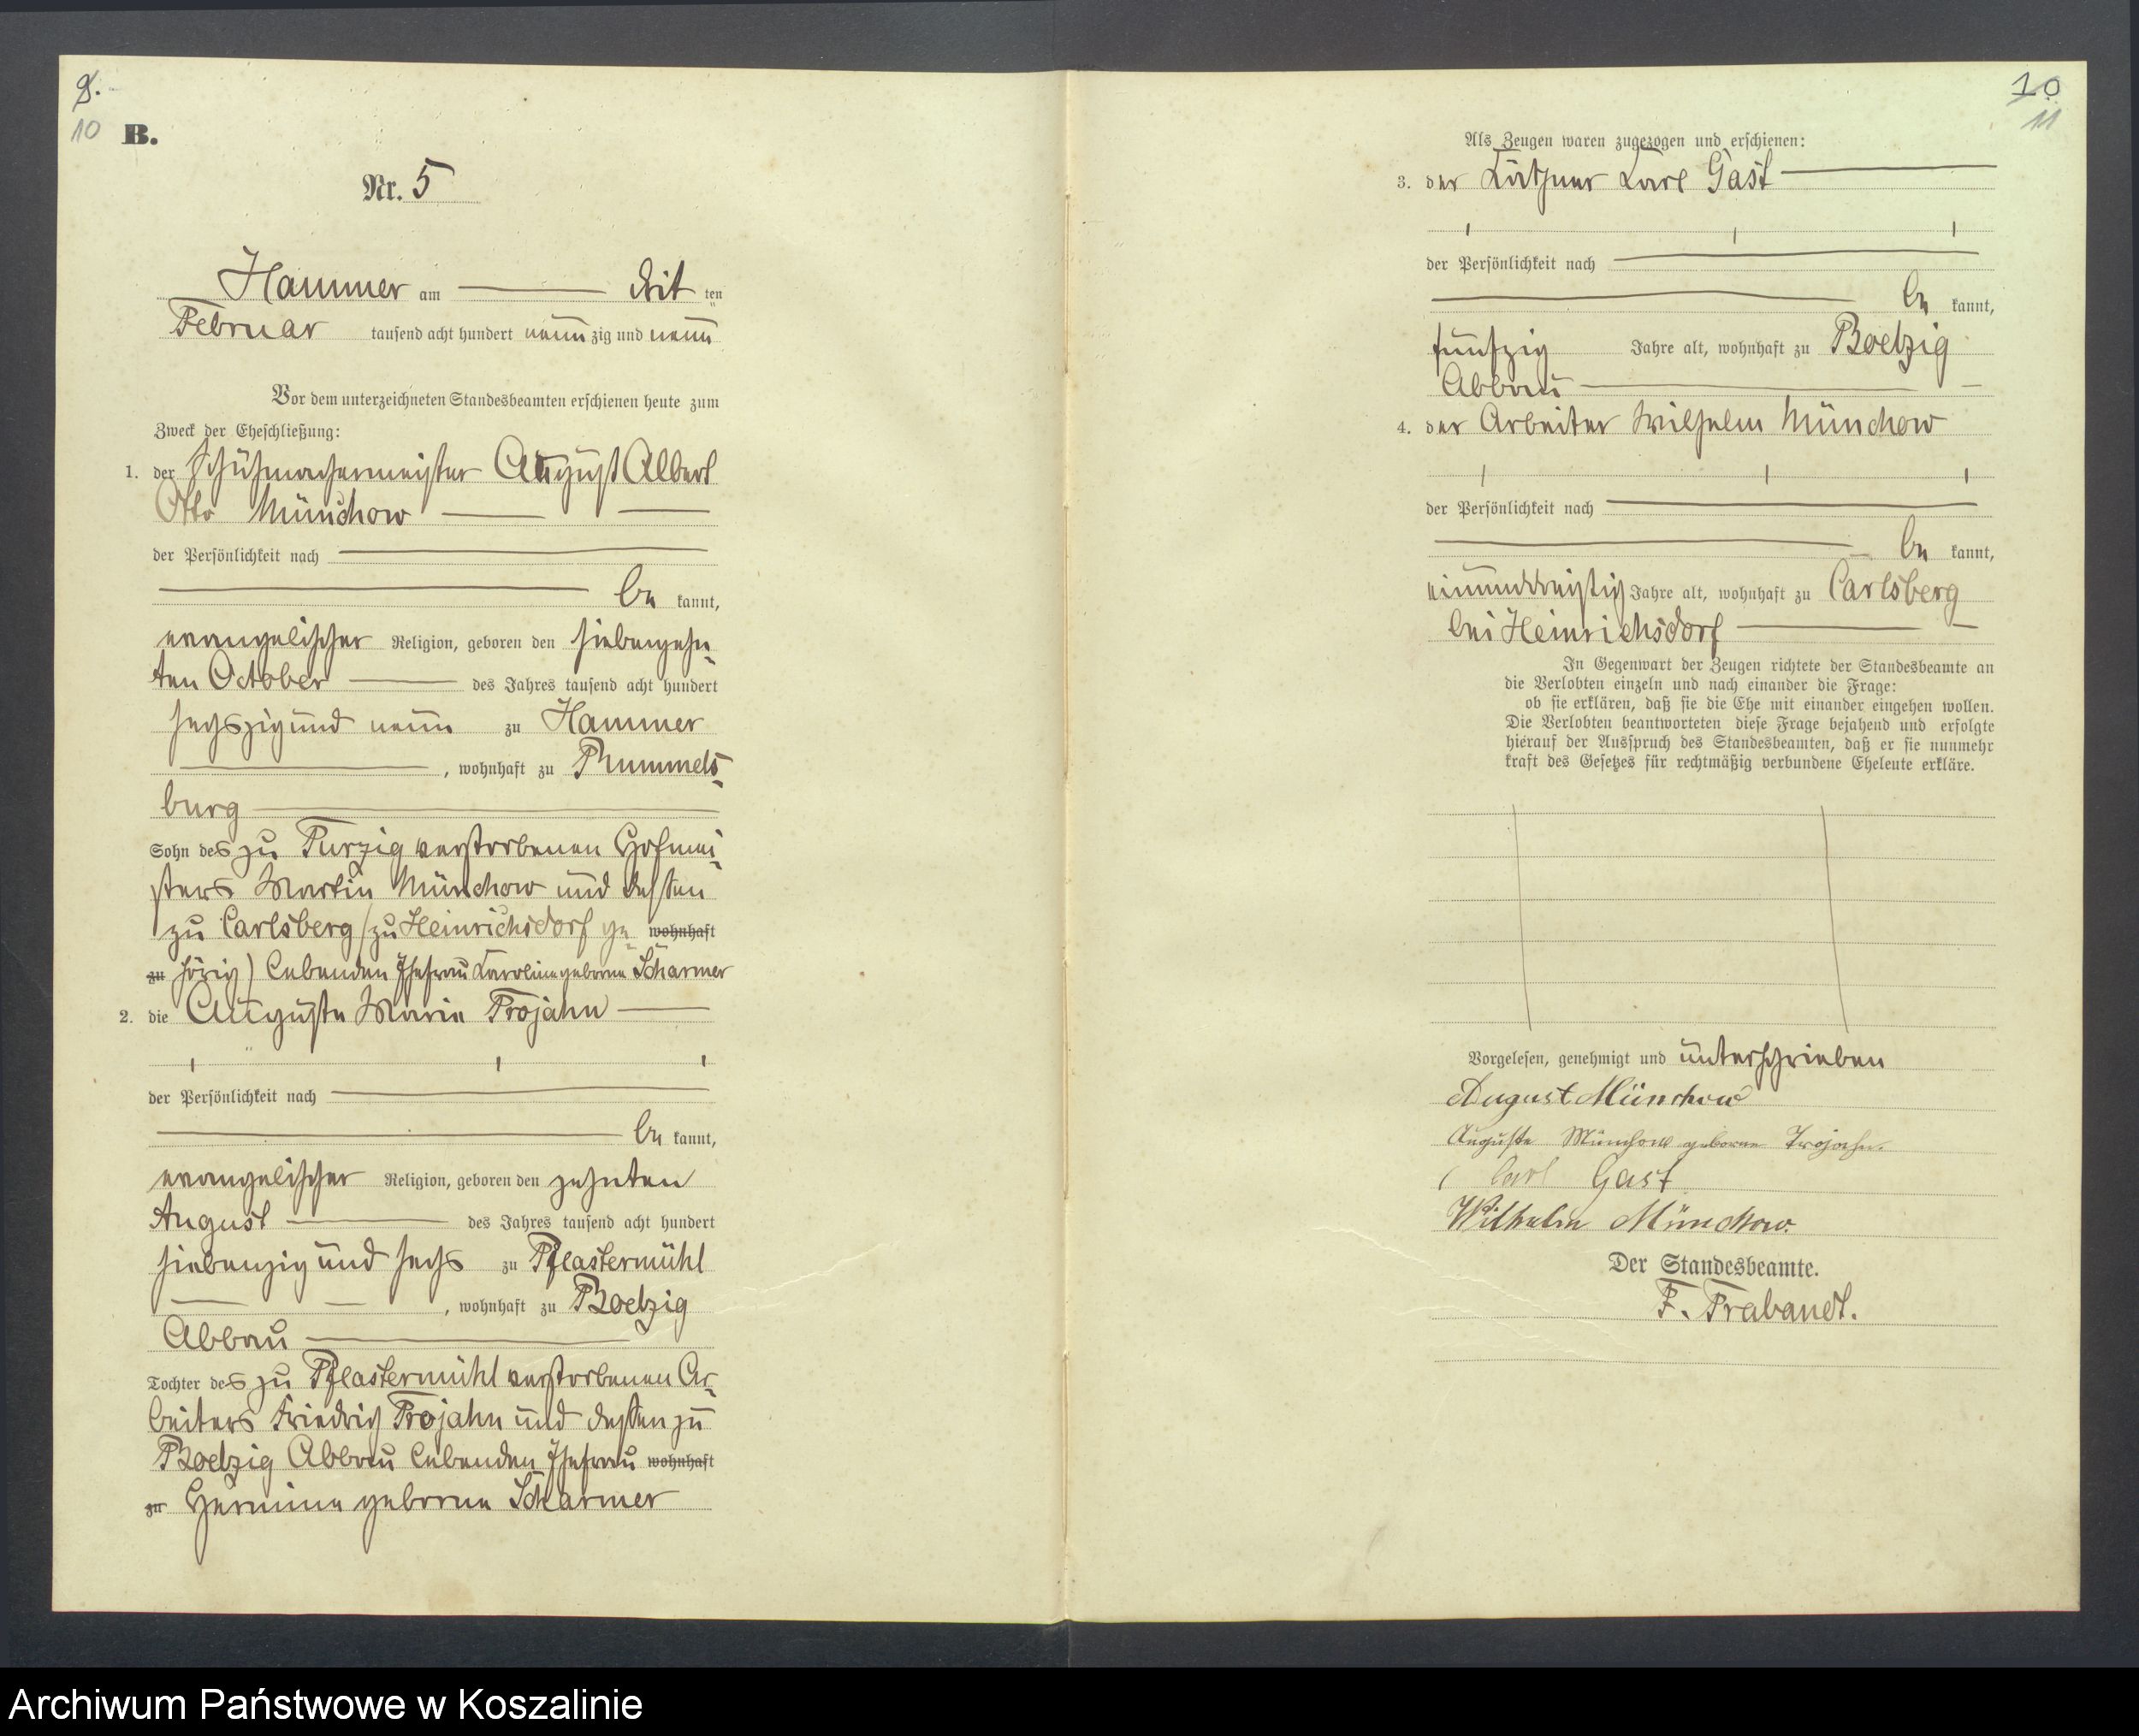 9.
10 B.
Nr. 5
Hammer am dritten
Februar tausend acht hundert neunzig und neun
Vor dem unterzeichneten Standesbeamten erschienen heute zum
Zweck der Eheschließung:
1. der Schuhmachermeister August Albert
Otto Münchow
der Persönlichkeit nach
be kannt,
evangelischer Religion, geboren den siebenzehn-
ten October des Jahres tausend acht hundert
sechszig und neun zu Hammer
, wohnhaft zu Rummels-
burg
Sohn des zu Turzig verstorbenen Hofmei-
sters Martin Münchow und dessen
zu Carlsberg (zu Heinrichsdorf ge- wohnhaft
zu hörig) lebenden Ehefrau Karoline geborne Scharmer
2. die Auguste Marie Trojahn
der Persönlichkeit nach
be kannt,
evangelischer Religion, geboren den zehnten
August des Jahres tausend acht hundert
siebenzig und sechs zu Pflastermühl
, wohnhaft zu Boetzig
Abbau
Tochter des zu Pflastermühl verstorbenen Ar-
beiters Friedrich Trojahn und dessen zu
Boetzig Abbau lebenden Ehefrau wohnhaft
zu Hermine geborne Scharmer
10
11
Als Zeugen waren zugezogen und erschienen:
3. der Käthner Karl Gast
der Persönlichkeit nach
be kannt,
fünfzig Jahre alt, wohnhaft zu Boetzig
Abbau
4. der Arbeiter Wilhelm Münchow
der Persönlichkeit nach
be kannt,
einunddreißig Jahre alt, wohnhaft zu Carlsberg
bei Heinrichsdorf
In Gegenwart der Zeugen richtete der Standesbeamte an
die Verlobten einzeln und nach einander die Frage:
ob sie erklären, daß sie die Ehe mit einander eingehen wollen.
Die Verlobten beantworteten diese Frage bejahend und erfolgte
hierauf der Ausspruch des Standesbeamten, daß er sie nunmehr
kraft des Gesetzes für rechtmäßig verbundene Eheleute erkläre.
Vorgelesen, genehmigt und unterschrieben
August Münchow
Auguste Münchow geborne Trojahn.
Carl Gast
Wilhelm Münchow.
Der Standesbeamte.
F. Trabandt.
Archiwum Państwowe w Koszalinie